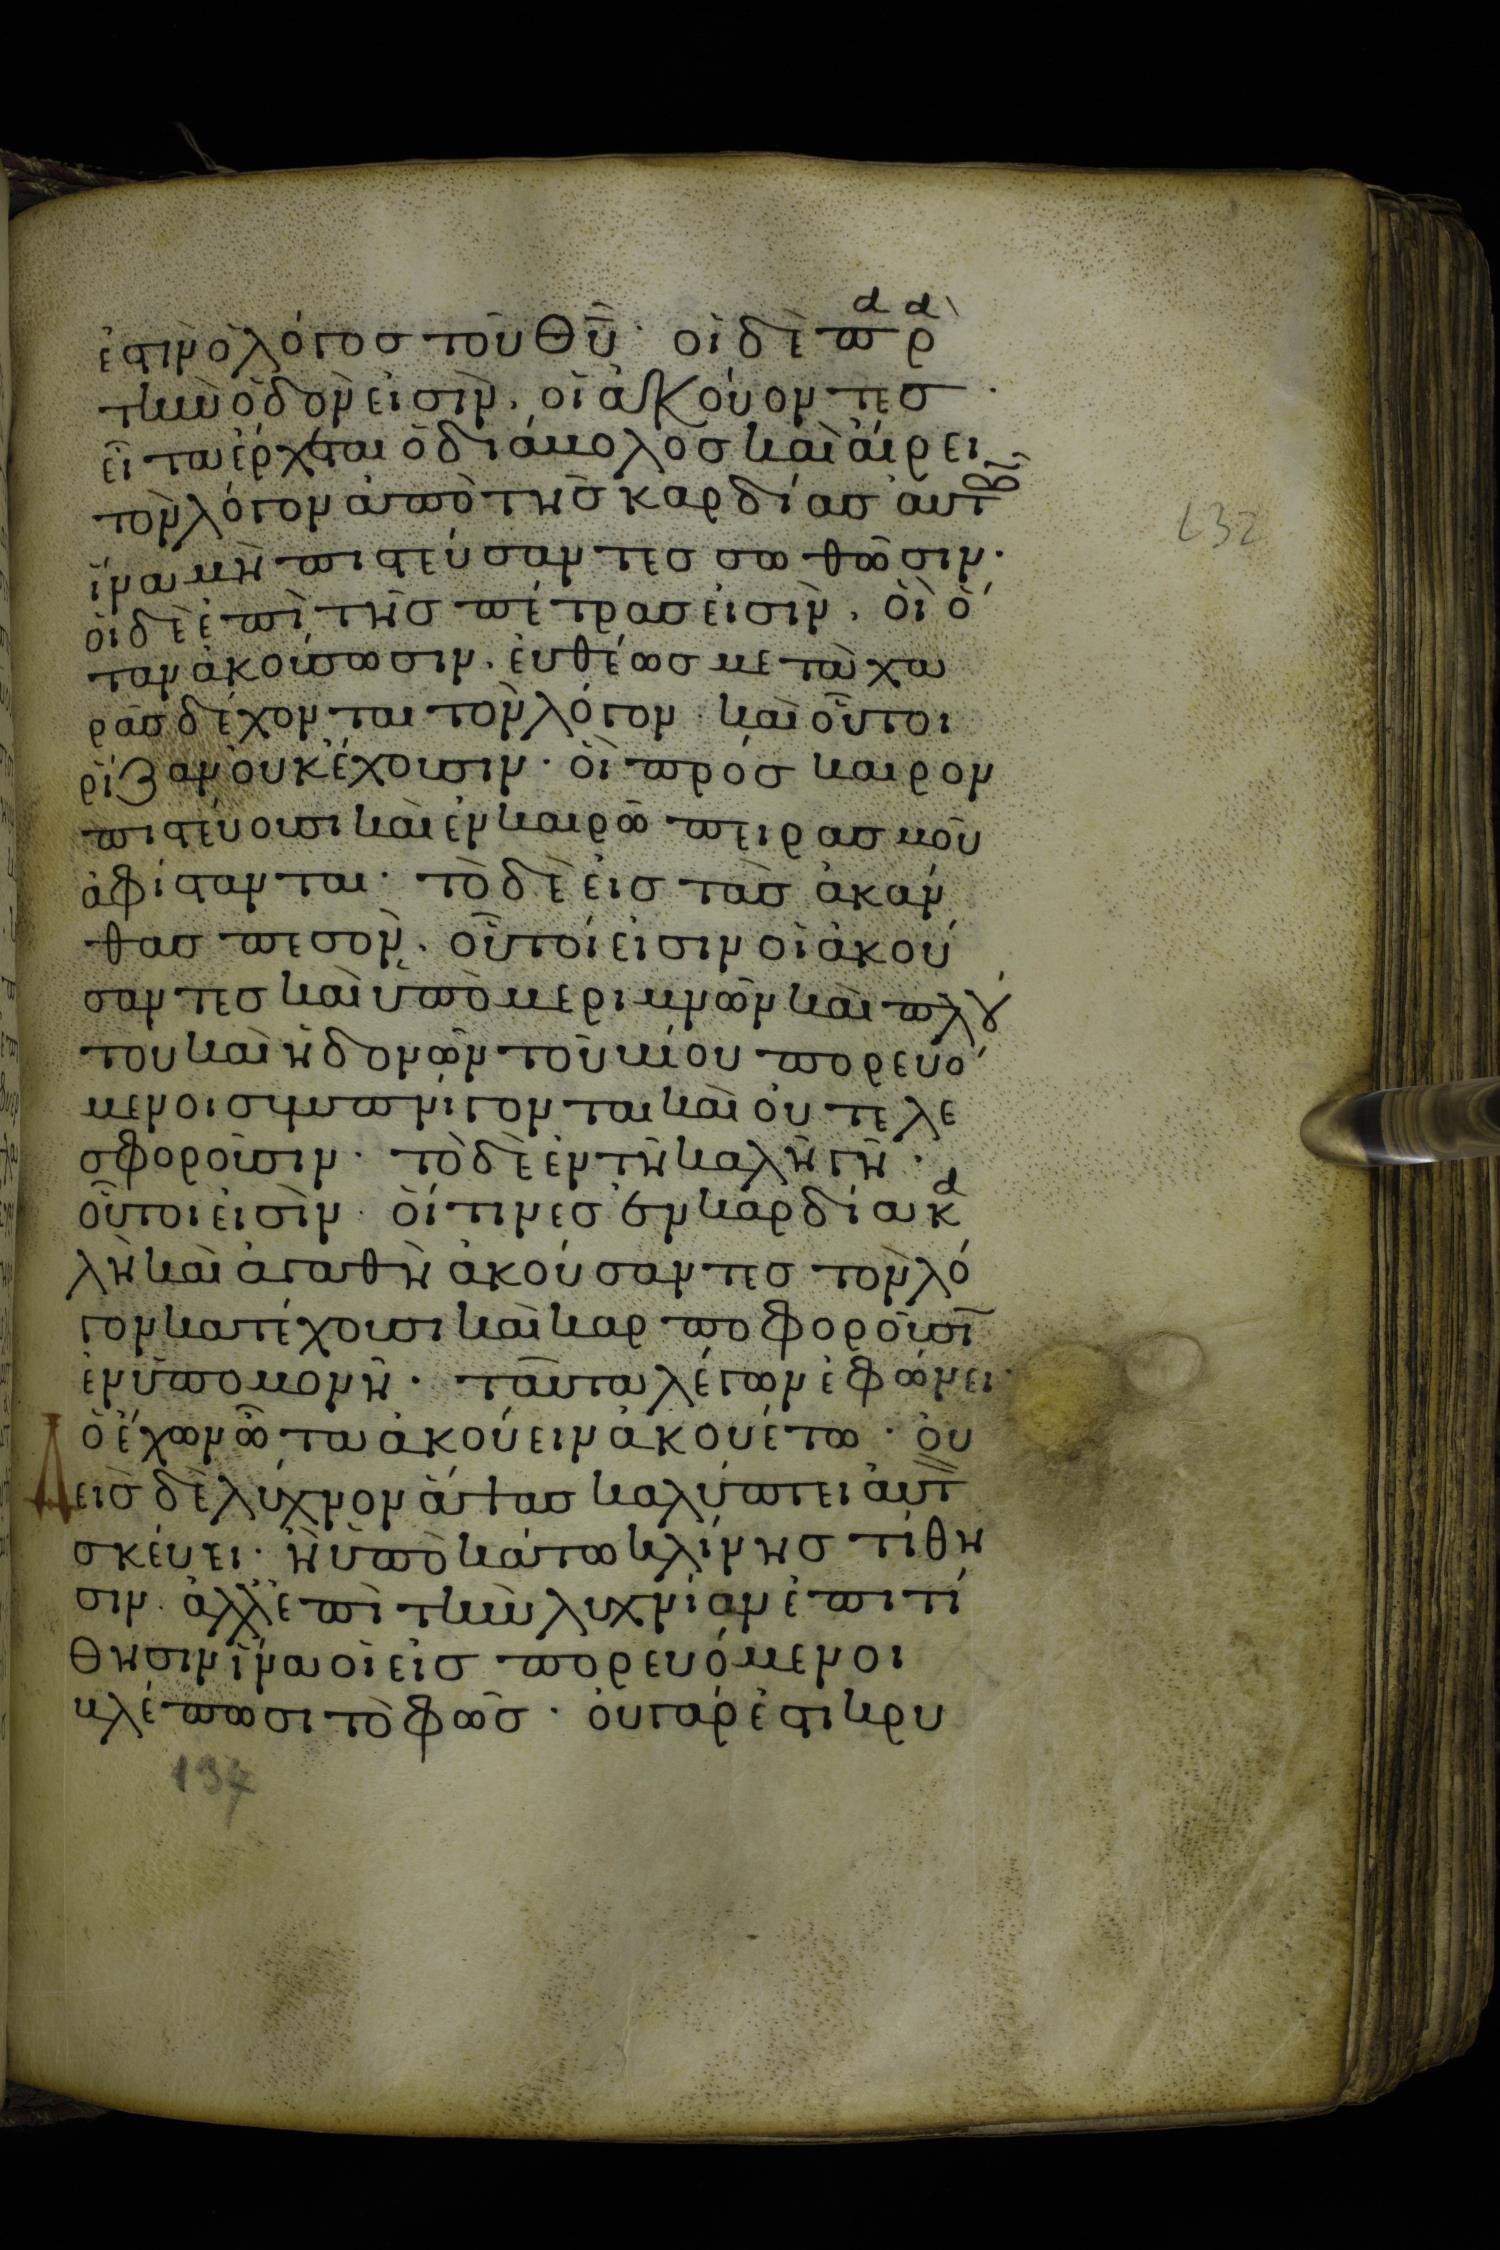 ἐστιν ὁ λόγος τοῦ θῡ· οἱ δὲ παρὰ
τὴν ὁδὸν εἰσὶν, οἱ ἀκούοντες·
εἶτα ἔρχεται ὁ διάβολος καὶ αἴρει
τὸν λόγον ἀπὸ τῆς καρδίας αὐτῶν
ἵνα μὴ πιστεύσαντες σωθῶσιν·
οἱ δὲ ἐπὶ τῆς πέτρας εἰσὶν, οἳ ὅ
ταν ἀκούσωσιν, εὐθέως μετὰ χα
ρᾶς δέχονται τὸν λόγον· καὶ οὗτοι
ῥίζαν οὐκ ἔχουσιν· οἳ πρός καιρον
πιστεύουσι καὶ ἐν καιρῶ πειρασμοῦ
ἀφίστανται· τὸ δὲ εἰς τὰς ἀκάν
θας πεσὸν, οὗτοί εἰσιν οἱ ἀκού
σαντες καὶ ὑπὸ μεριμνῶν καὶ πλού
του καὶ ἡδονῶν τοῦ βίου πορευό
μενοι συμπνίγονται καὶ οὐ τελε
σφοροῦσιν· τὸ δὲ ἐν τῆ καλῆ γῆ·
οὗτοι εἰσὶν· οἵτινες ἐν καρδία κα
λῆ καὶ ἀγαθῆ ἀκούσαντες τὸν λό
γον κατέχουσι καὶ καρποφοροῦσῑ
ἐν ὑπομονῆ· ταῦτα λέγων ἐφώνει·
ὁ ἔχων ὦτα ἀκούειν ἀκουέτω· οὐ
Δεὶς δὲ λύχνον ἅψας καλύπτει αὐτὸν
σκεύει· ἢ ὑπὸ κάτω κλίνης τίθη
σιν. ἀλλ' ἐπὶ τὴν λυχνίαν ἐπιτί
θησιν ἵνα οἱ εἰσπορευόμενοι
βλέπωσι τὸ φῶς· οὐ γάρ ἐστι κρυ
137
132